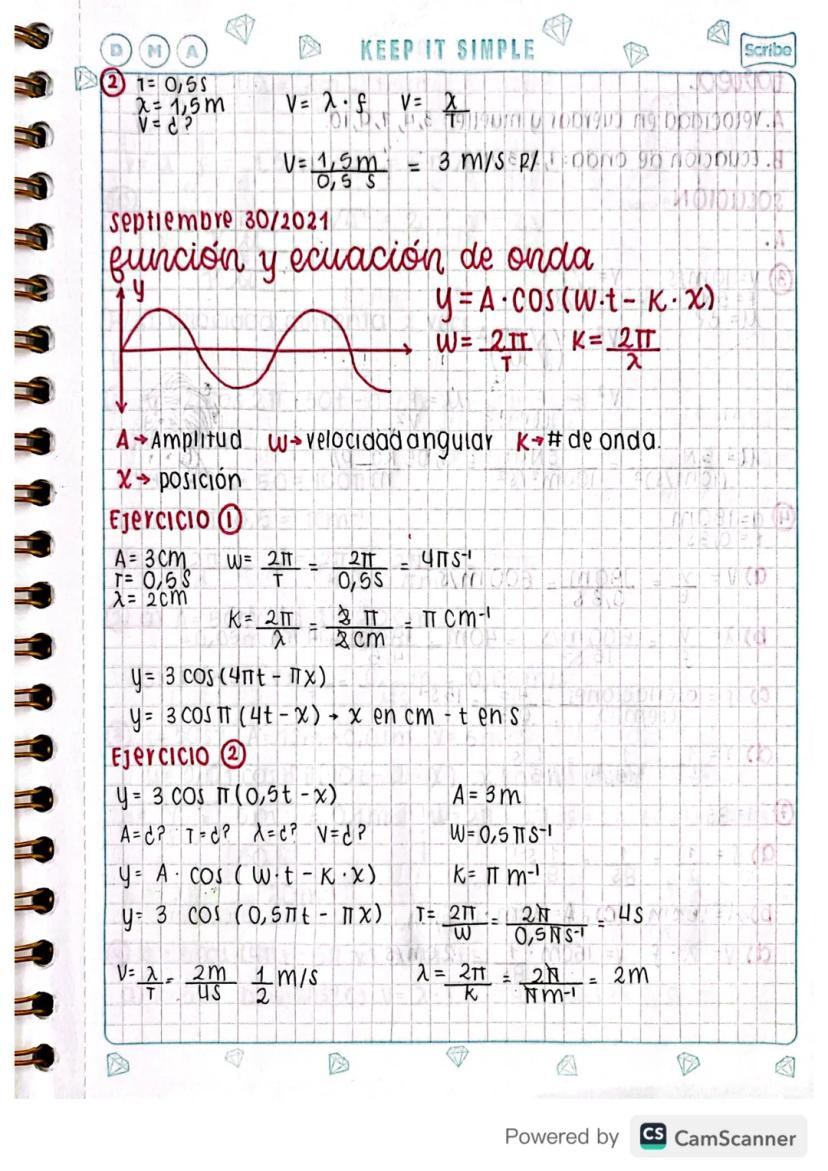 D M A KEEP IT SIMPLE Scribe
② T= 0,5s
λ= 1,5m V= λ·f V= λ/T
V=¿?
V= 1,5m/0,5 s = 3 m/s R/
septiembre 30/2021
función y ecuación de onda
y
y= A·COS(W·t- K·x)
W= 2π/T K= 2π/λ
A→Amplitud W→velocidad angular K→# de onda.
X→ posición
Ejercicio ①
A= 3cm W= 2π/T = 2π/0,5s = 4πs⁻¹
T= 0,5s
λ= 2cm
K= 2π/λ = 2 π/2 cm = π cm⁻¹
y= 3 cos(4πt - πx)
y= 3cosπ(4t-x)→ x en cm - t en s
Ejercicio ②
y= 3 cos π(0,5t-x) A= 3m
A=¿? T=¿? λ=¿? V=¿? W=0,5πs⁻¹
y= A· cos (W·t-K·x) K= π m⁻¹
y= 3 cos (0,5πt- πx) T= 2π/W = 2π/0,5πs⁻¹ = 4s
V= λ/T = 2m/4s 1/2 m/s λ= 2π/K = 2π/πm⁻¹ = 2m
Powered by CS CamScanner